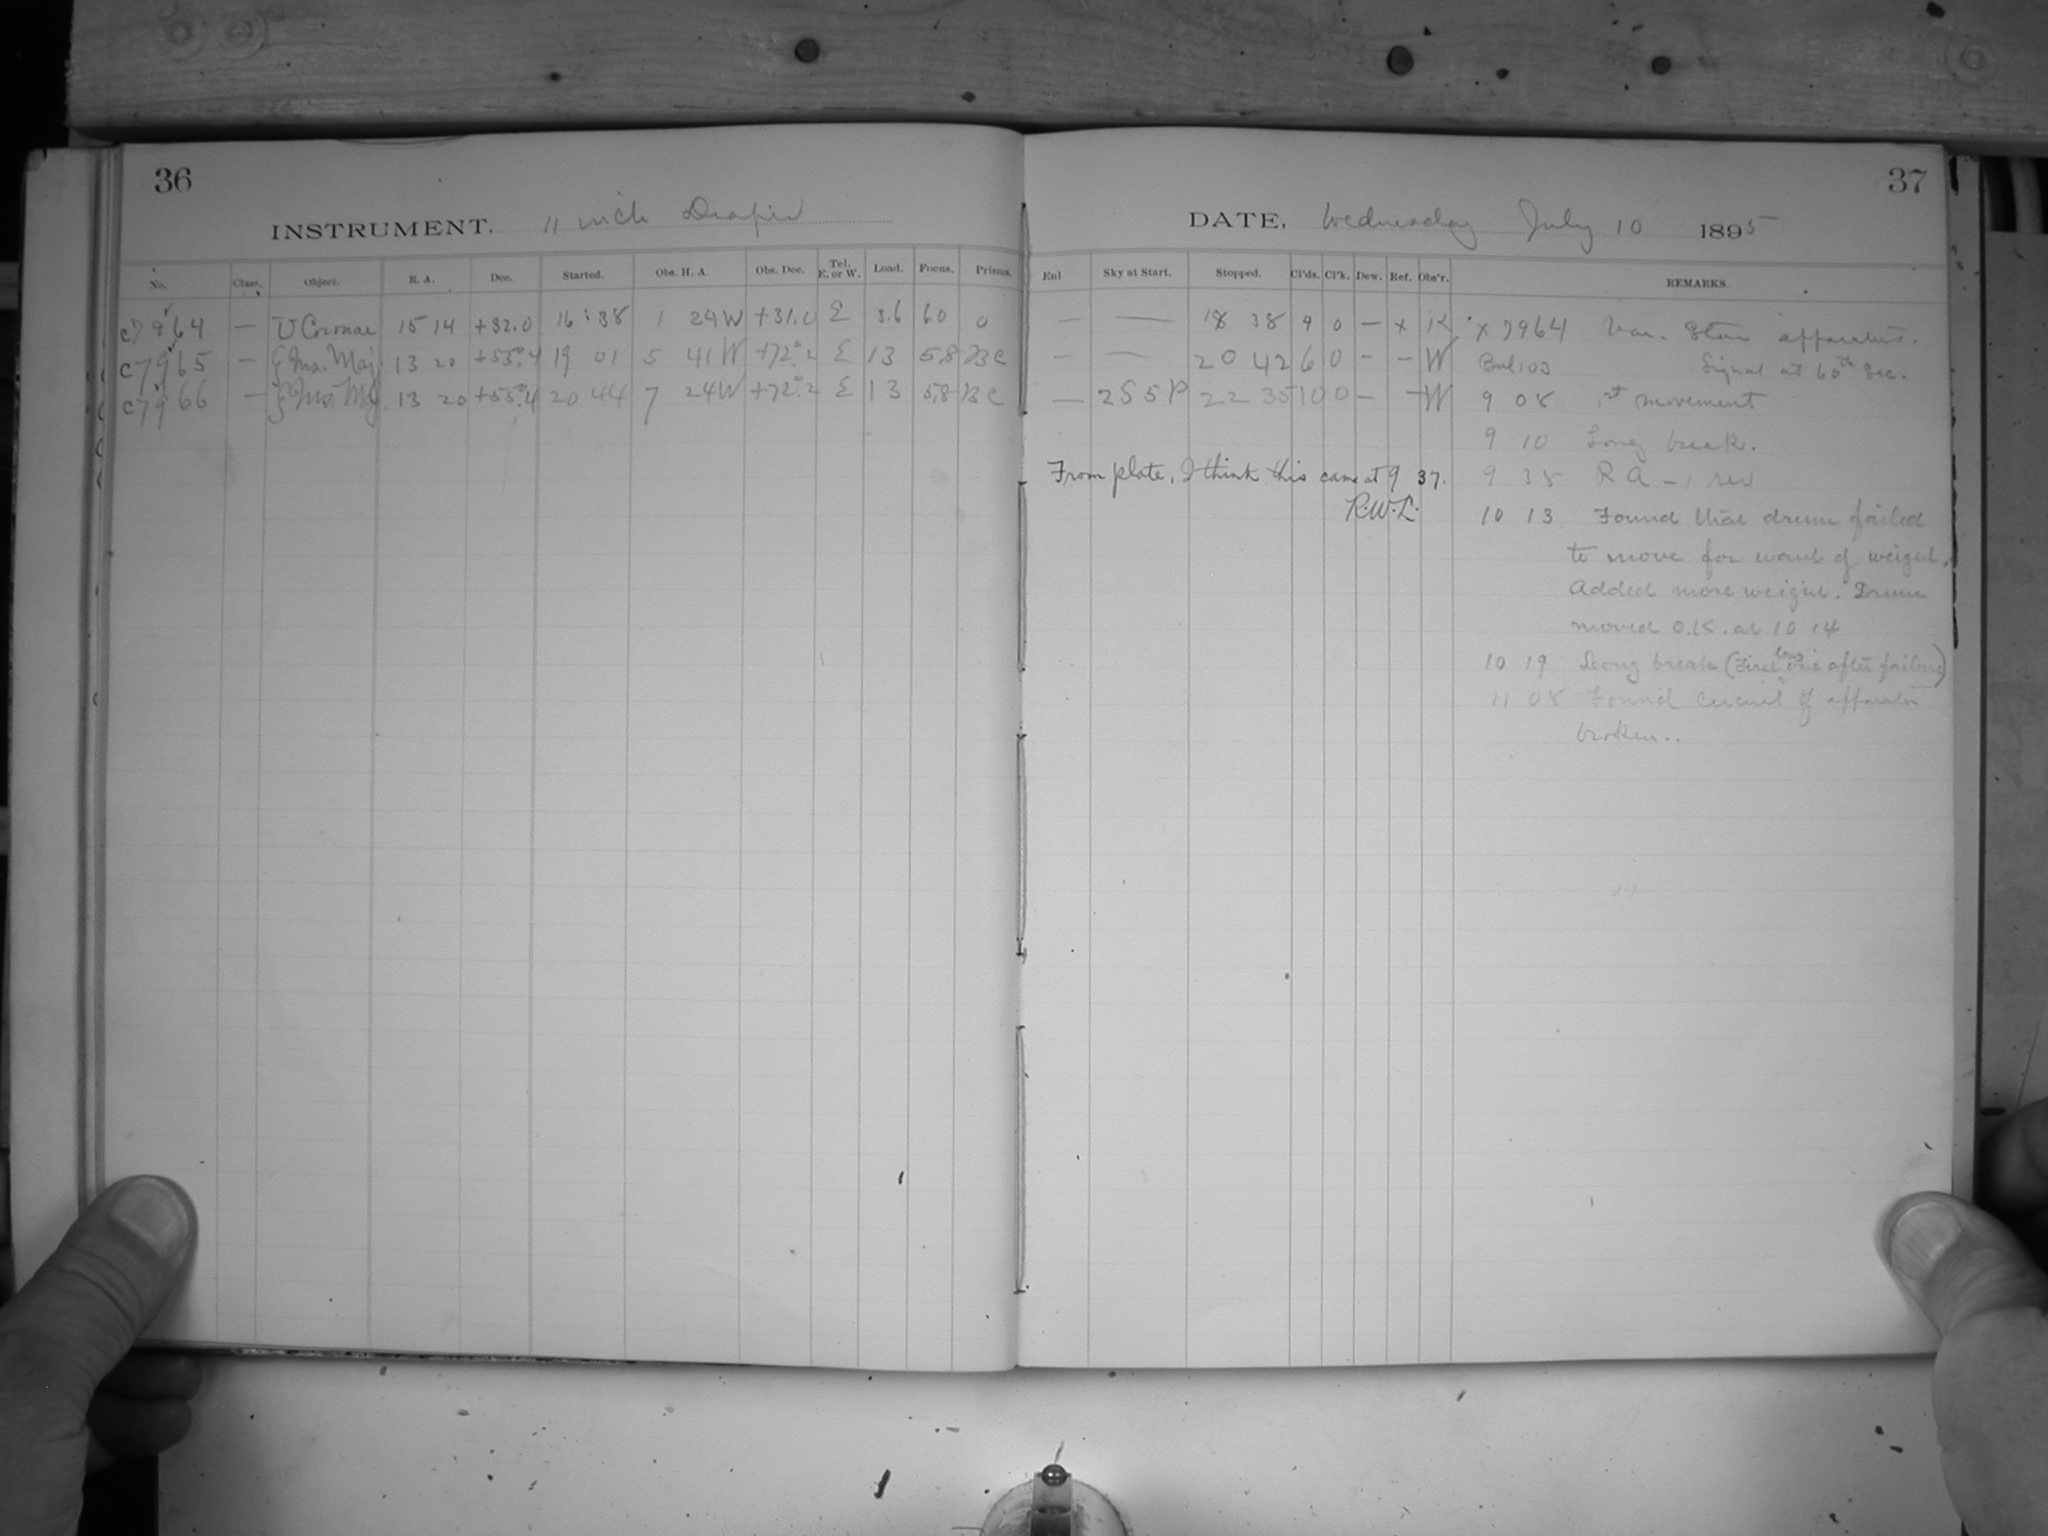 36
INSTRUMENT. 11 inch Draper
No. Class. Object. R. A. Dec. Started. Obs. H. A. Obs. Dec. Tel. E. or W. Load. Focus. Prisms.
c7964 — U Coronae 15 14 +32.0 16 38 1 24W +31.0 E 3.6 6.0 0
c7965 — ζ Urs. Maj. 13 20 +55°.4 19 01 5 41W +72°.2 E 13 5.8 BC
c7966 — ζ Urs. Mj 13 20 +55°.4 20 44 7 24W +72°.2 E 13 5.8 BC
37
DATE, Wednesday July 10 1895
Enl Sky at Start. Stopped. Cl'ds. Cl'k. Dew. Ref. Obs'r. REMARKS.
— — 18 38 9 0 — x K x 7964 Var. Star apparatus.
— — 20 42 6 0 — — W Signal at 60th sec.
— 2S5P 22 35 10 0 — — W 9 08 1st movement
9 10 Long break.
From plate, I think this came at 9 37. 9 38 RA – 1 rev
R.W.L.
10 13 Found that drum failed
to move for want of weight.
Added more weight. Drum
moved O.K. at 10 14
10 19 Long break (First long one after failure)
11 08 Found circuit of apparatus
broken..